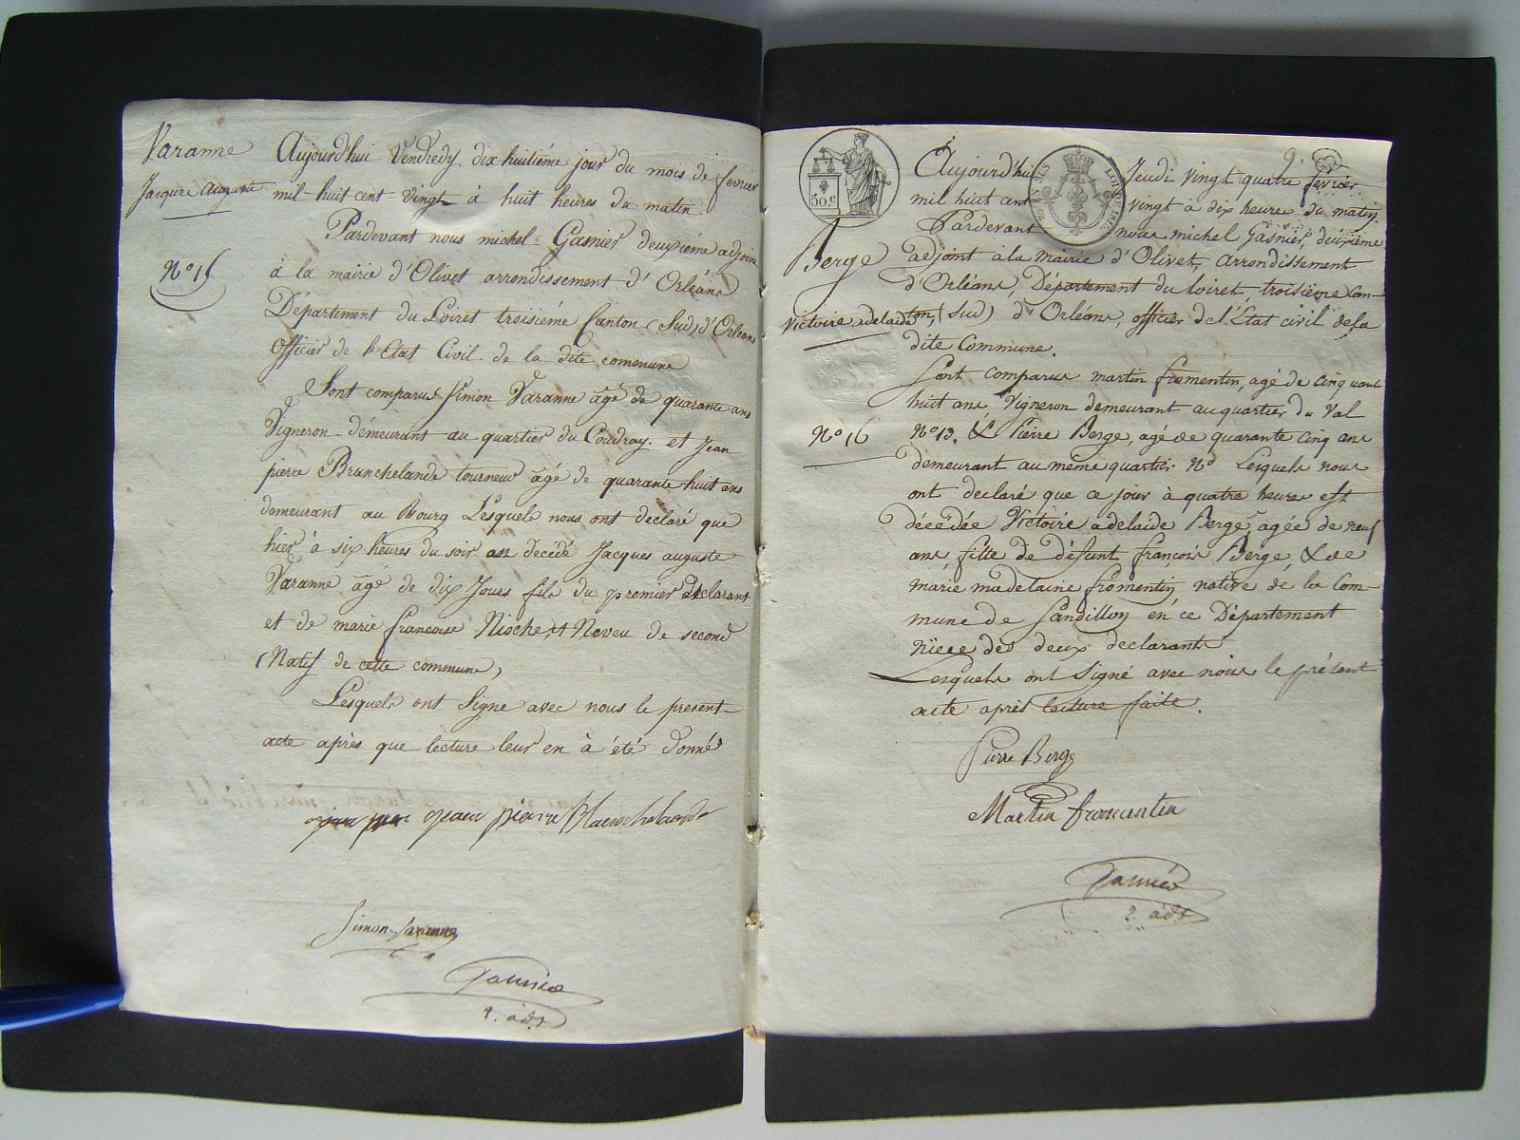 Varanne
Jacques Auguste
N° 15
Aujourd'hui Vendredy dix huitiéme jour du mois de fevrier
mil huit cent vingt à huit heures du matin.
Pardevant nous michel Gasnier deuxiéme adjoint
à la mairie d'Olivet arrondissement d'Orléans
Département du Loiret troisiéme Canton (Sud) d'Orléans
Officier de l'Etat Civil de la dite commune
Sont comparus Simon Varanne âgé de quarante ans
Vigneron démeurant au quartier du Coudray et Jean
pierre Blanchelande tourneur âgé de quarante huit ans
demeurant au Bourg Lesquels nous ont declaré que
hier à six heures du soir est decédé Jacques auguste
Varanne âgé de dix Jours fils du premier declarant
et de marie francoise Nioche et Neveu de second
Natif de cette commune,
Lesquels ont Signe avec nous le present
acte après que lecture leur en à été donné
Jean pierre Blanchelande
Simon Varanne
Gasnier
2. adt
50 c
9.
Berge
Victoire adelaide
N° 16
Aujourd'hui Jeudi vingt quatre fevrier
mil huit cent vingt à dix heures du matin.
Pardevant nous michel Gasnier, deuxième
adjoint à la Mairie d'Olivet, arrondissement
d'Orléans, Département du Loiret, troisième Can-
ton, (Sud) d'Orléans, officier de l'Etat civil de la
dite Commune.
Sont comparus martin fromentin, agé de cinquante
huit ans, Vigneron demeurant au quartier du Val
N° 13. & Pierre Berge, agé de quarante cinq ans
demeurant au même quartier N° Lesquels nous
ont declaré que ce jour à quatre heures est
décédée Victoire adelaide Berge, agée de neuf
ans, fille de défunt françois Berge, & de
marie madelaine fromentin, native de la Com-
mune de Sandillon en ce Département
nièce des deux declarants
Lesquels ont Signé avec nous le présent
acte après lecture faite.
Pierre Berge
Martin fromentin
Gasnier
2. adt